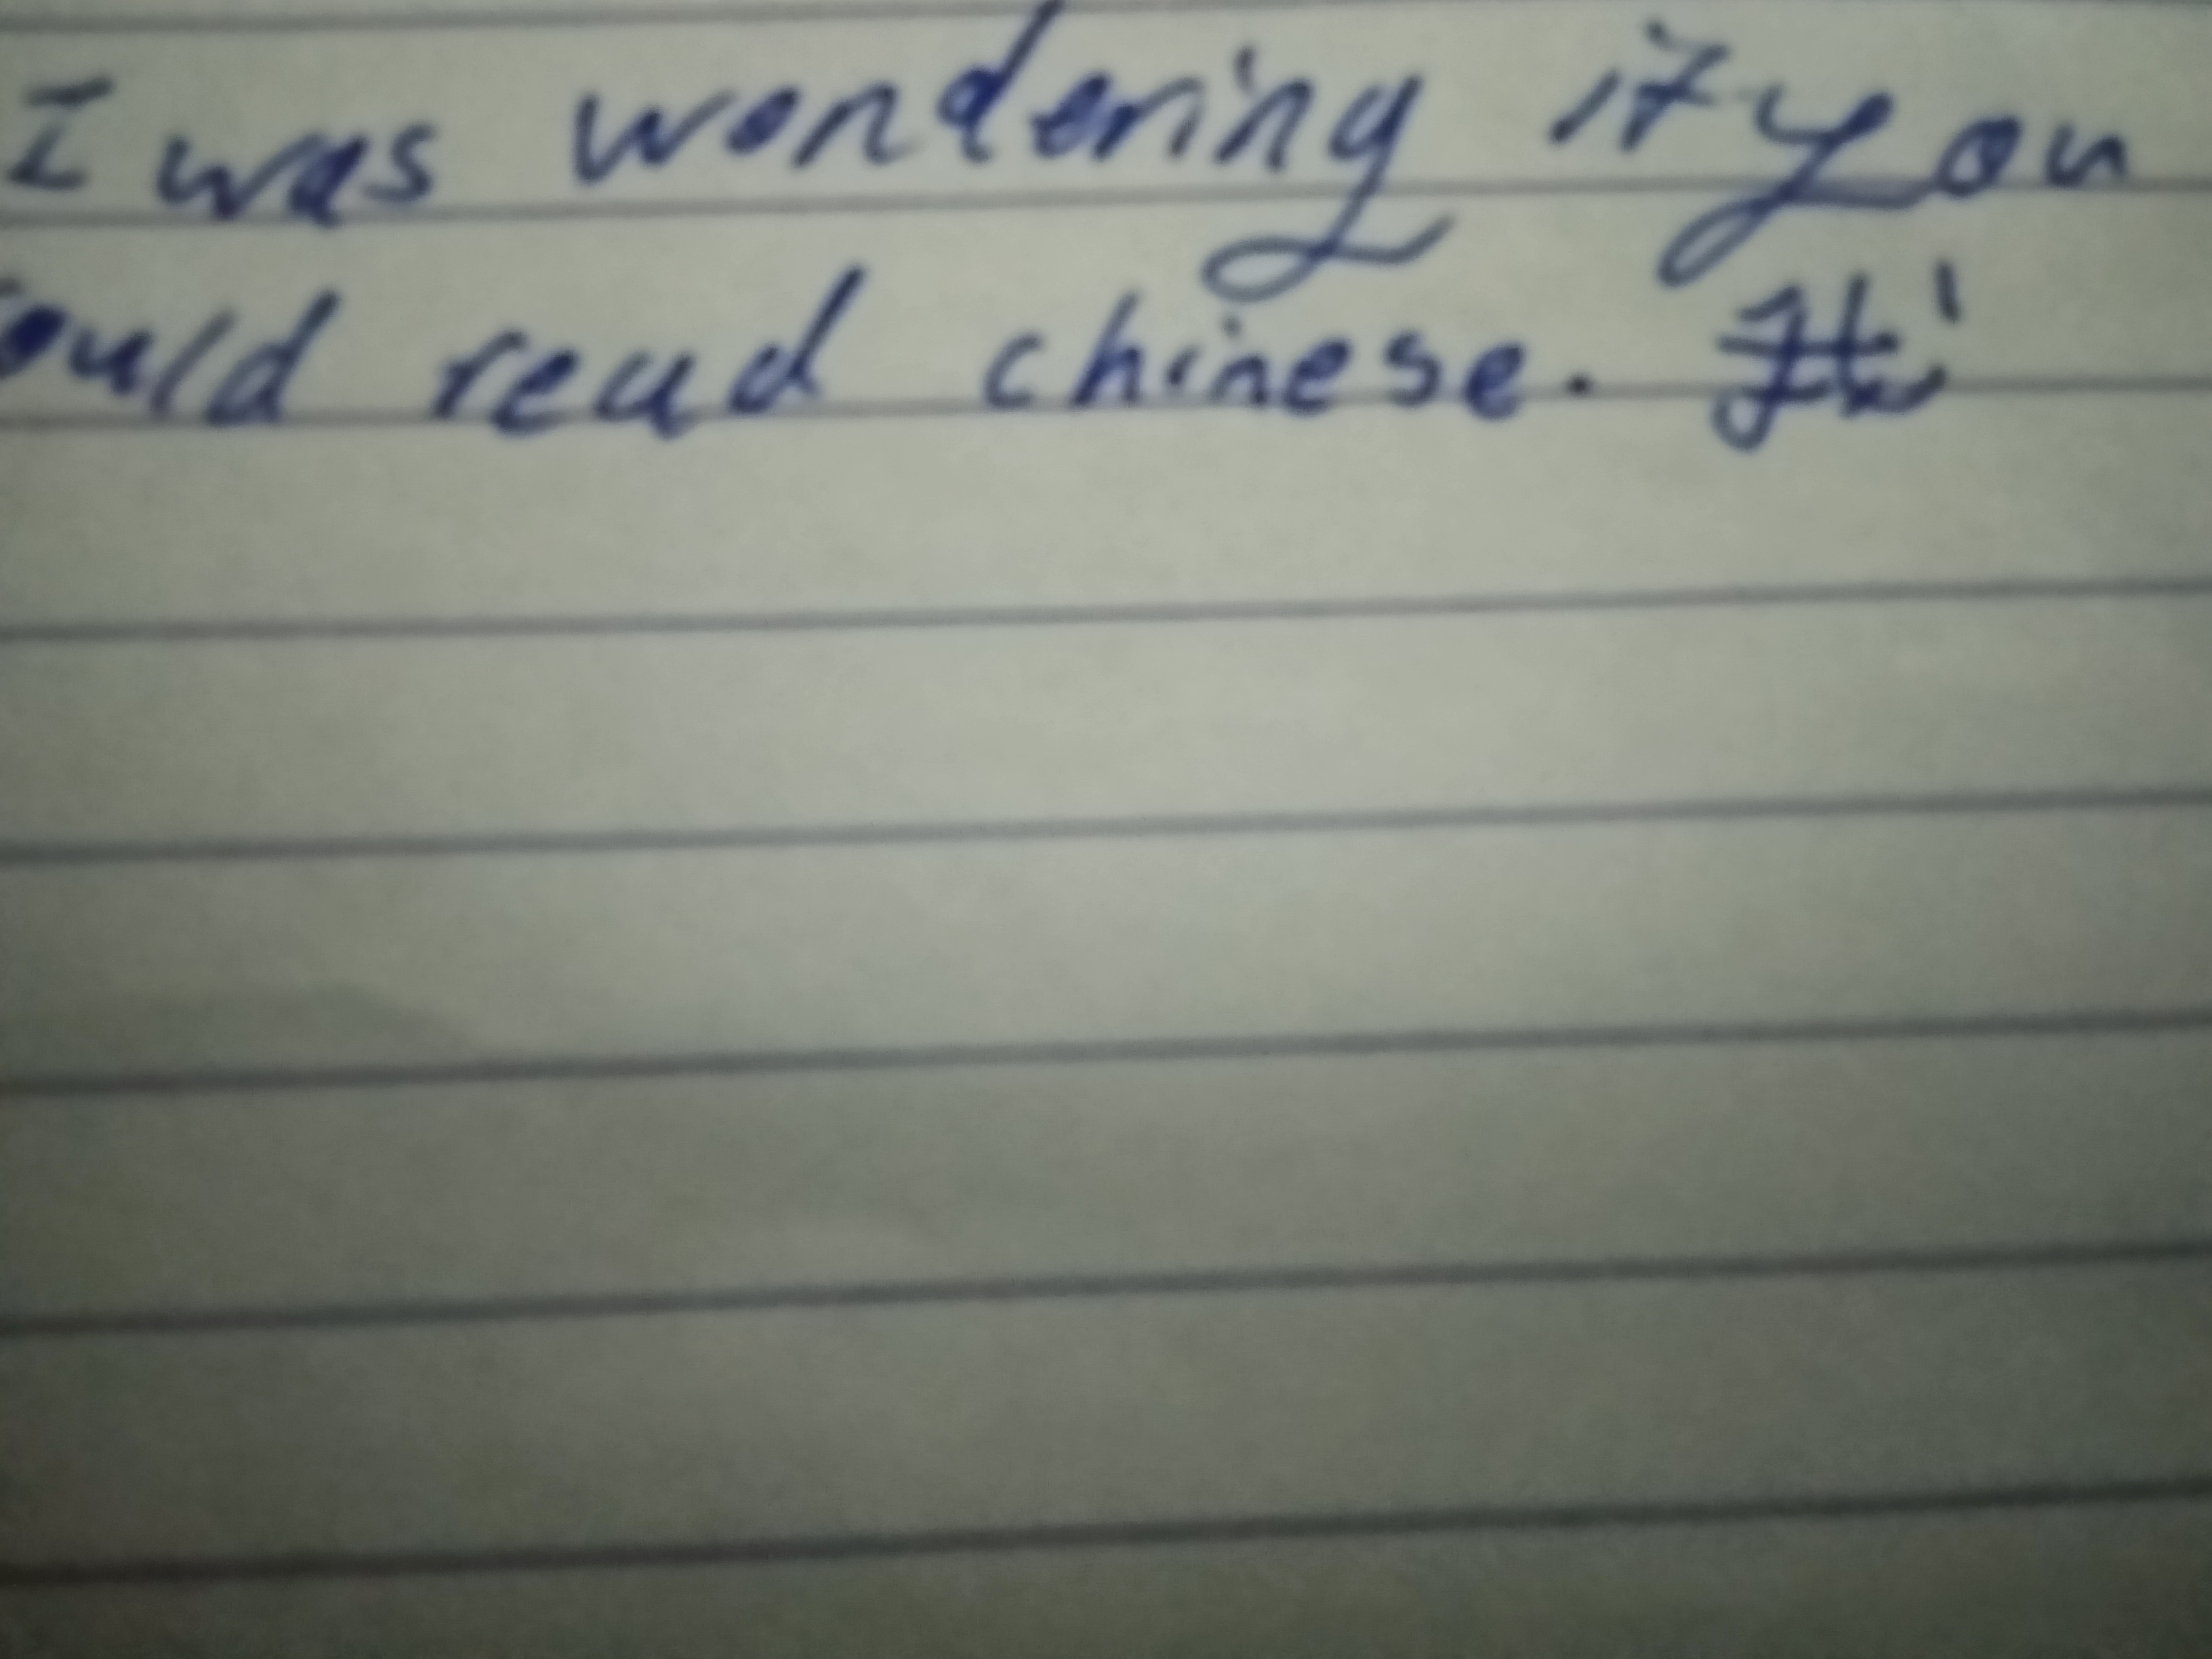 I was wondering if you
ould read chinese.